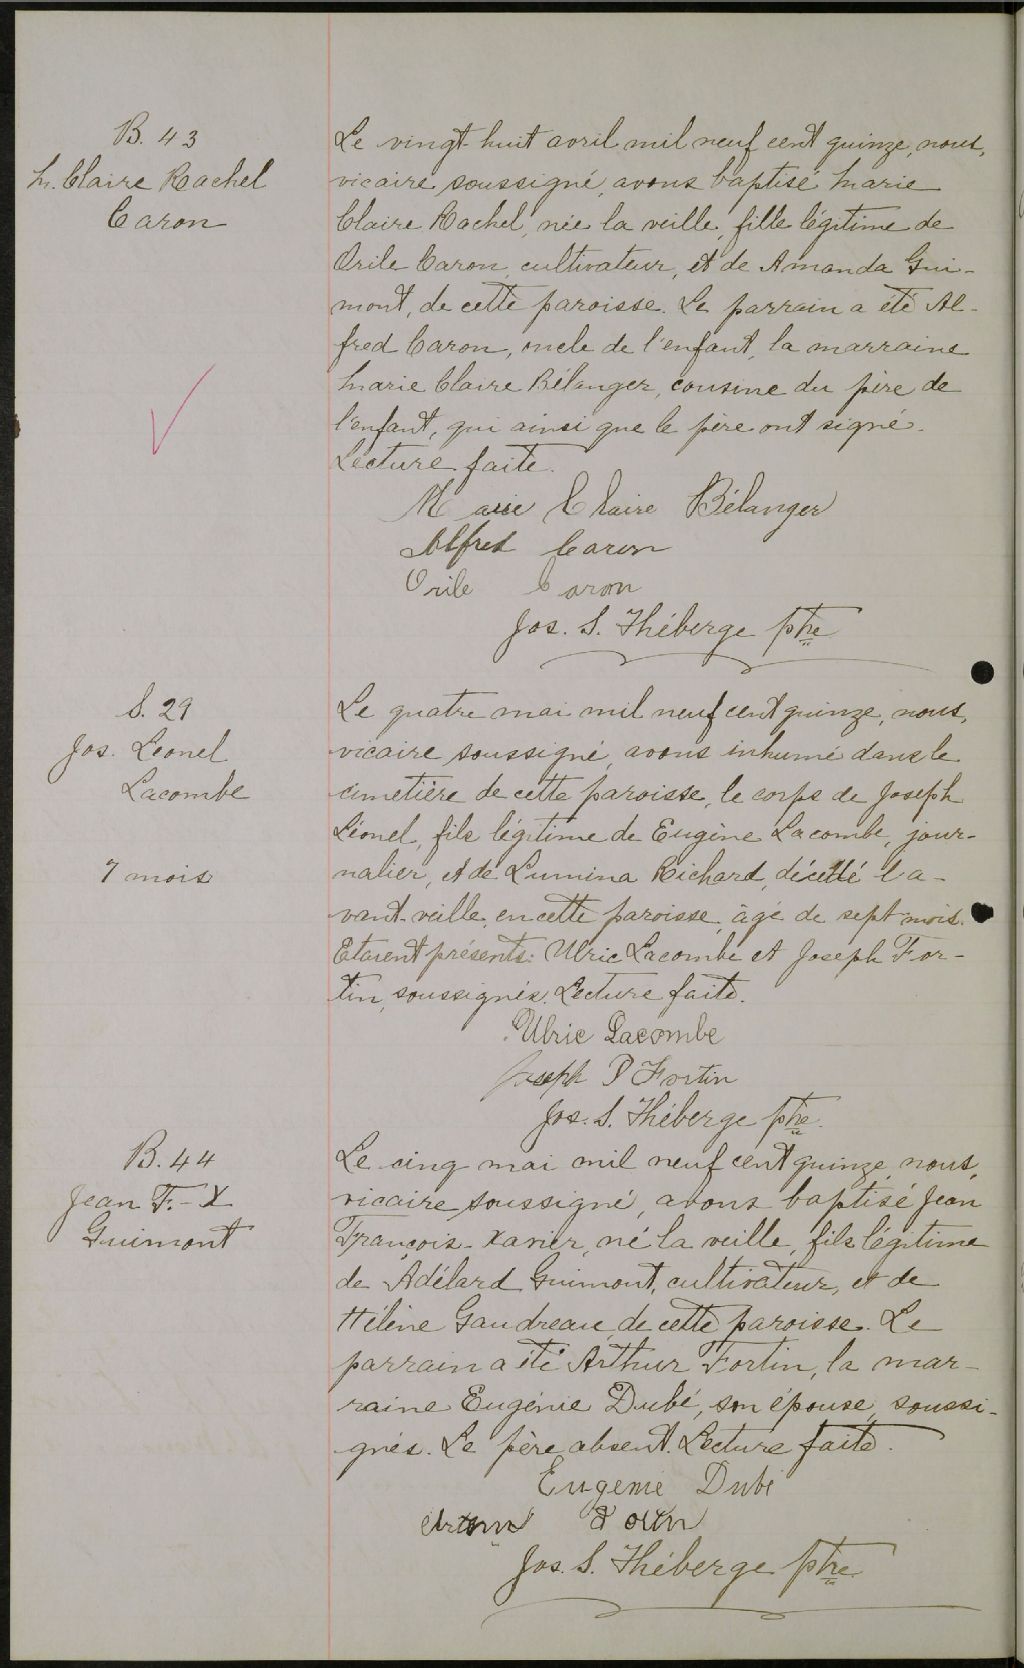 B. 43
M. Claire Rachel
Caron
Le vingt-huit avril mil neuf cent quinze, nous,
vicaire soussigné, avons baptisé Marie
Claire Rachel, née la veille, fille légitime de
Orile Caron, cultivateur, et de Amanda Gui-
mont, de cette paroisse. Le parrain a été Al-
fred Caron, oncle de l'enfant, la marraine
Marie Claire Bélanger, cousine du père de
l'enfant, qui ainsi que le père ont signé.
Lecture faite.
Marie Claire Bélanger
Alfred Caron
Orile Caron
Jos. S. Théberge ptre
S. 29
Jos. Léonel
Lacombe
7 mois
Le quatre mai mil neuf cent quinze, nous,
vicaire soussigné, avons inhumé dans le
cimetière de cette paroisse, le corps de Joseph
Léonel, fils légitime de Eugène Lacombe, jour-
nalier, et de Lumina Richard, décédé l'a-
vant-veille, en cette paroisse, âgé de sept mois.
Etaient présents: Ulric Lacombe et Joseph For-
tin, soussignés. Lecture faite.
Ulric Lacombe
Joseph P Fortin
Jos. S. Théberge ptre.
B. 44
Jean F.-X
Guimont
Le cinq mai mil neuf cent quinze, nous,
vicaire soussigné, avons baptisé Jean
François-Xavier, né la veille, fils légitime
de Adélard Guimont, cultivateur, et de
Hélène Gaudreau, de cette paroisse. Le
parrain a été Arthur Fortin, la mar-
raine Eugénie Dubé, son épouse, soussi-
gnés. Le père absent. Lecture faite.
Eugénie Dubé
Jos. S. Théberge ptre